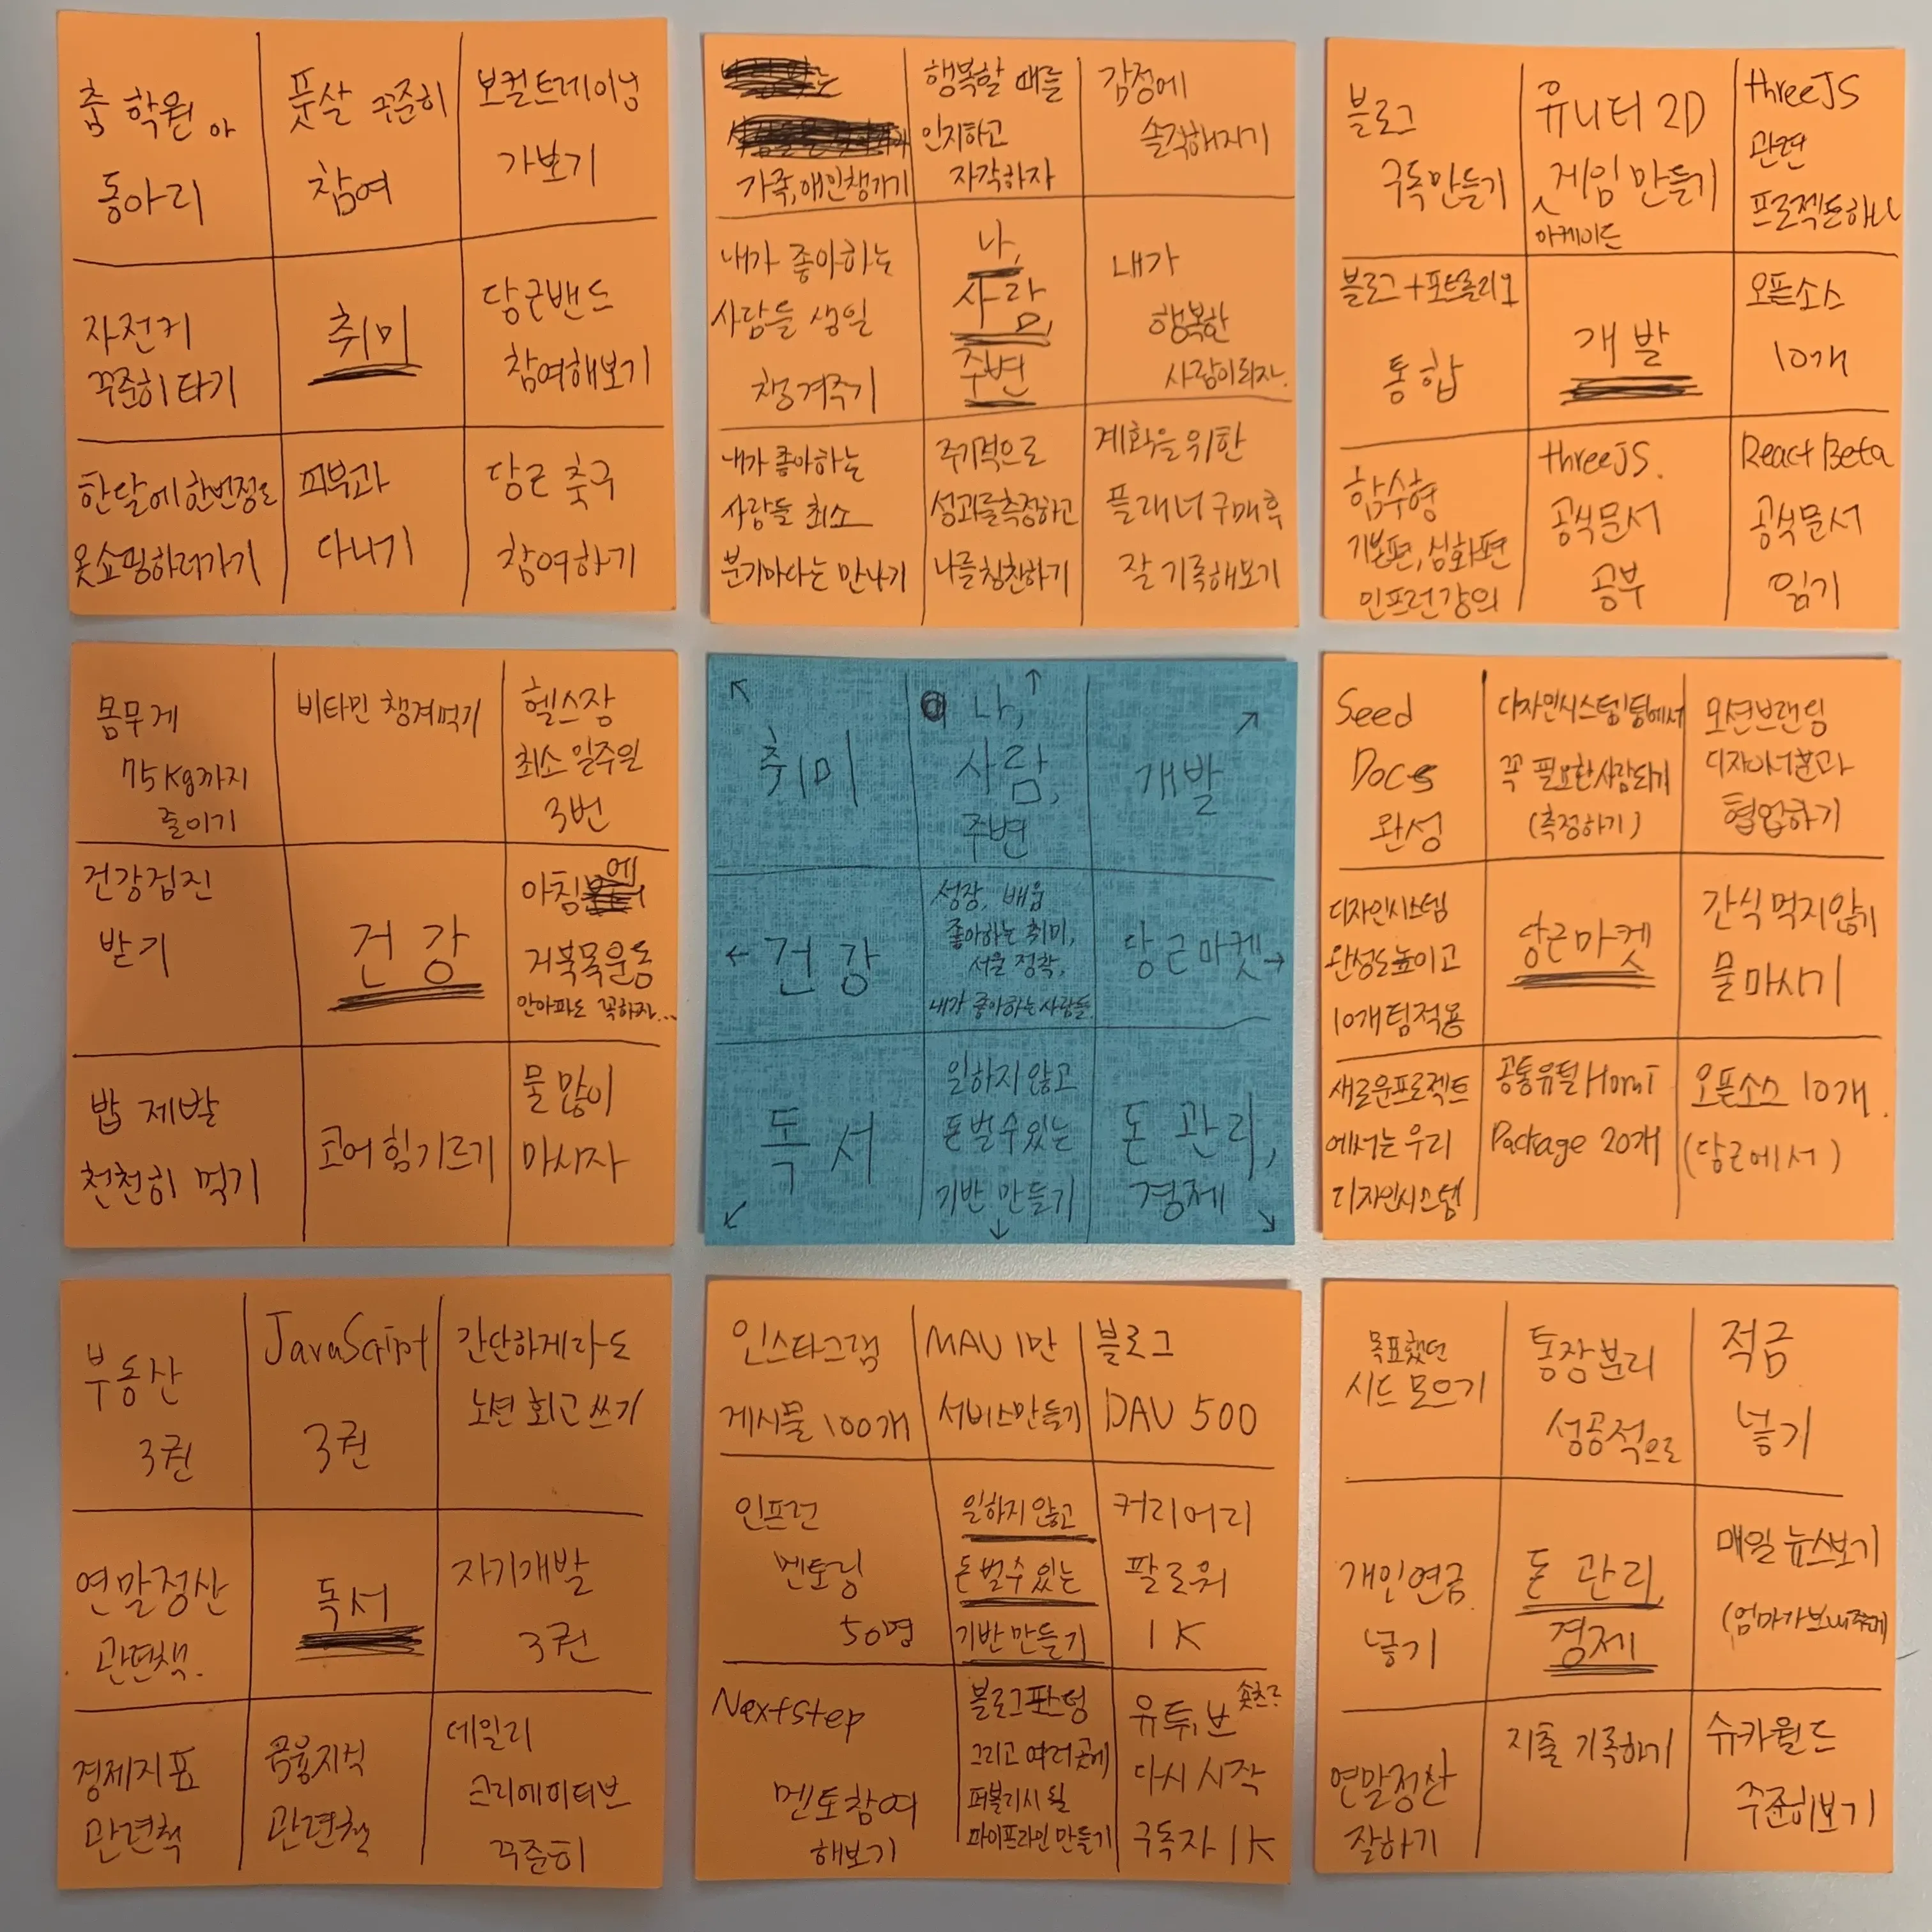 춤 학원 or
동아리
풋살 꾸준히
참여
보컬트레이닝
가보기
자전거
꾸준히 타기
취미
당근밴드
참여해보기
한달에 한번정도
옷쇼핑하러가기
피부과
다니기
당근 축구
참여하기
가족, 애인챙기기
행복할 때를
인지하고
자각하자
감정에
솔직해지기
내가 좋아하는
사람들 생일
챙겨주기
나,
사람,
주변
내가
행복한
사람이되자.
내가 좋아하는
사람들 최소
분기마다는 만나기
주기적으로
성과를측정하고
나를칭찬하기
계획을 위한
플래너 구매후
잘 기록해보기
블로그
구독만들기
유니티 2D
게임 만들기
아케이드
threeJS
관련
프로젝트하나
블로그+포트폴리오
통합
개발
오픈소스
10개
함수형
기본편, 심화편
인프런강의
threeJS.
공식문서
공부
React Beta
공식문서
읽기
몸무게
75kg까지
줄이기
비타민 챙겨먹기
헬스장
최소 일주일
3번
건강검진
받기
건강
아침에
거북목운동
안아파도 꼭하자...
밥 제발
천천히 먹기
코어 힘 기르기
물 많이
마시자
취미
나,
사람,
주변
개발
건강
성장, 배움
좋아하는 취미,
서울 정착,
내가 좋아하는사람들.
당근마켓
독서
일하지 않고
돈벌수있는
기반 만들기
돈 관리,
경제
Seed
Docs
완성
디자인시스템팀에서
꼭 필요한사람되기
(측정하기)
모션브랜딩
디자이너분과
협업하기
디자인시스템
완성도높이고
10개팀적용
당근마켓
간식 먹지않기
물 마시기
새로운프로젝트
에서는 우리
디자인시스템
공통유틸
Package 20개
오픈소스 10개.
(당근에서)
부동산
3권
JavaScript
3권
간단하게라도
노션 회고 쓰기
연말정산
관련책.
독서
자기개발
3권
경제지표
관련책
금융지식
관련책
데일리
크리에이티브
꾸준히
인스타그램
게시물 100개
MAU 1만
서비스만들기
블로그
DAU 500
인프런
멘토링
50명
일하지 않고
돈 벌수 있는
기반 만들기
커리어리
팔로워
1K
Nextstep
멘토참여
해보기
블로그펀딩
그리고 여러곳에
퍼블리시 될
파이프라인 만들기
유튜브 숏츠로
다시 시작
구독자 1K
목표했던
시드 모으기
통장분리
성공적으로
적금
넣기
개인연금
넣기
돈 관리,
경제
매일 뉴스보기
연말정산
잘하기
지출 기록하기
슈카월드
꾸준히보기